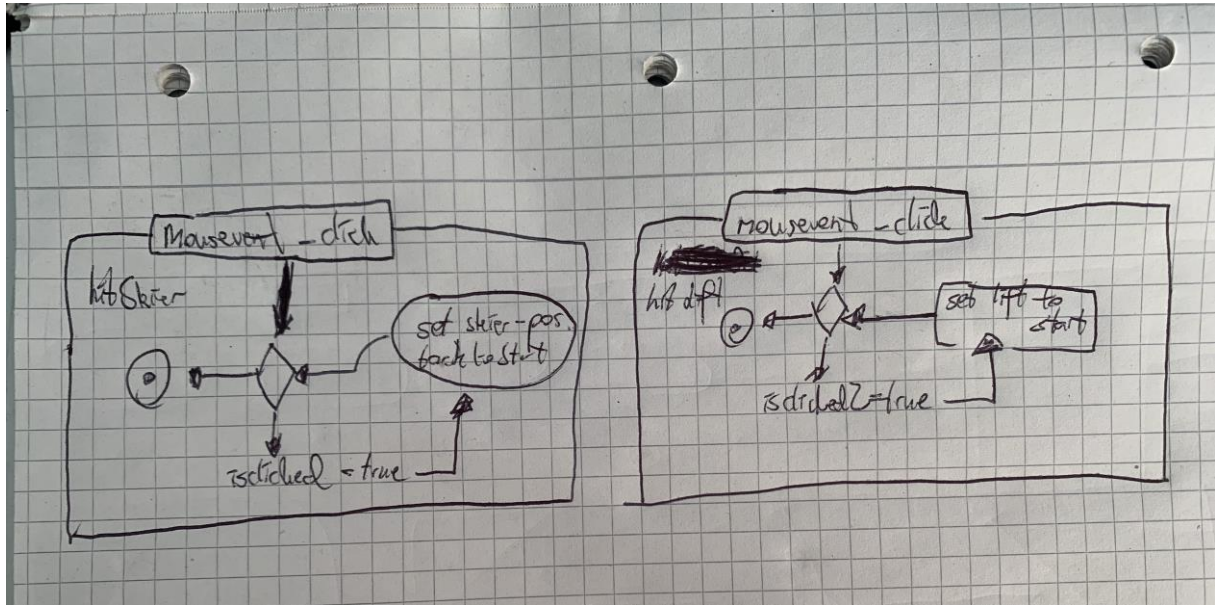 Mousevent_click
hitSkier
set skier-pos.
back to start
isclicked = true
mousevent_click
hit lift
set lift to
start
isclicked2=true